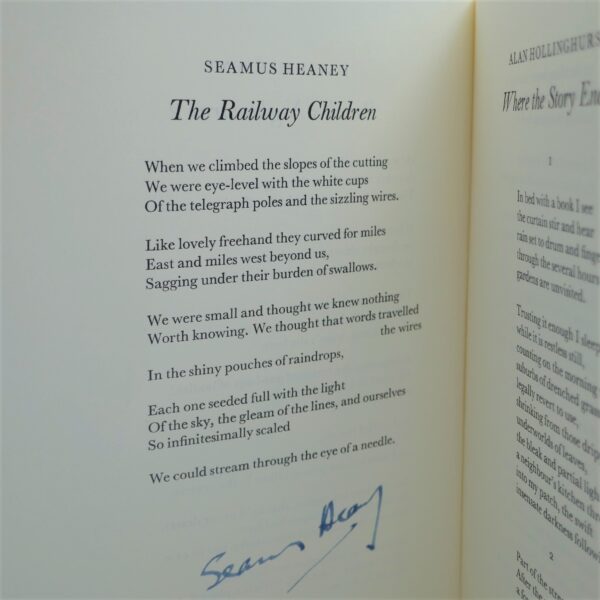 SEAMUS HEANEY
The Railway Children
When we climbed the slopes of the cutting
We were eye-level with the white cups
Of the telegraph poles and the sizzling wires.
Like lovely freehand they curved for miles
East and miles west beyond us,
Sagging under their burden of swallows.
We were small and thought we knew nothing
Worth knowing. We thought that words travelled
the wires
In the shiny pouches of raindrops,
Each one seeded full with the light
Of the sky, the gleam of the lines, and ourselves
So infinitesimally scaled
We could stream through the eye of a needle.
Seamus Heaney
ALAN HOLLINGHURS
Where the Story En
1
In bed with a book I see
the curtain stir and hear
rain set to drum and fing
through the several hours
gardens are unvisited.
Trusting it enough I sleep
while it is restless still,
counting on the morning
suburbs of drenched grass
legally revert to use,
shrinking from those drip
underworlds of leaves,
the bleak and partial ligh
a neighbour's kitchen thr
into my patch, the swift
intensate darkness followi
2
Part of the stre
After the
a s